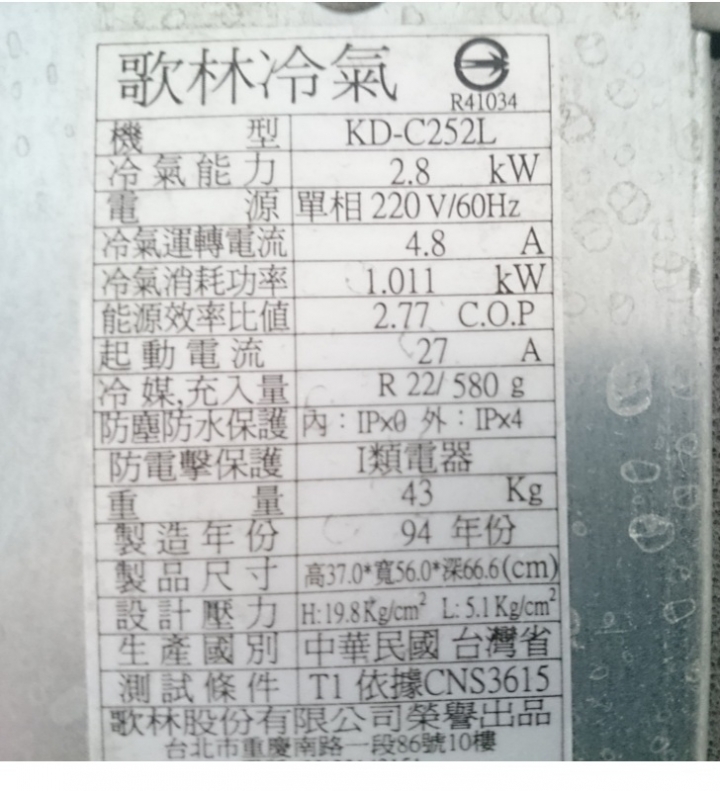 歌林冷氣
R41034
機型 KD-C252L
冷氣能力 2.8 kW
電源 單相 220 V/60Hz
冷氣運轉電流 4.8 A
冷氣消耗功率 1.011 kW
能源效率比值 2.77 C.O.P
起動電流 27 A
冷媒,充入量 R 22/ 580 g
防塵防水保護 內：IPx0 外：IPx4
防電擊保護 I類電器
重量 43 Kg
製造年份 94 年份
製品尺寸 高37.0*寬56.0*深66.6(cm)
設計壓力 H:19.8Kg/cm² L: 5.1Kg/cm²
生產國別 中華民國 台灣省
測試條件 T1 依據CNS3615
歌林股份有限公司榮譽出品
台北市重慶南路一段86號10樓